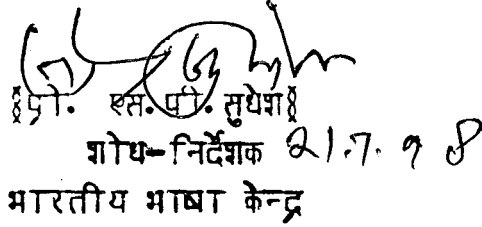 (प्रो. एस. पी. सुधेश)
शोध-निर्देशक 21.7.98
भारतीय भाषा केन्द्र